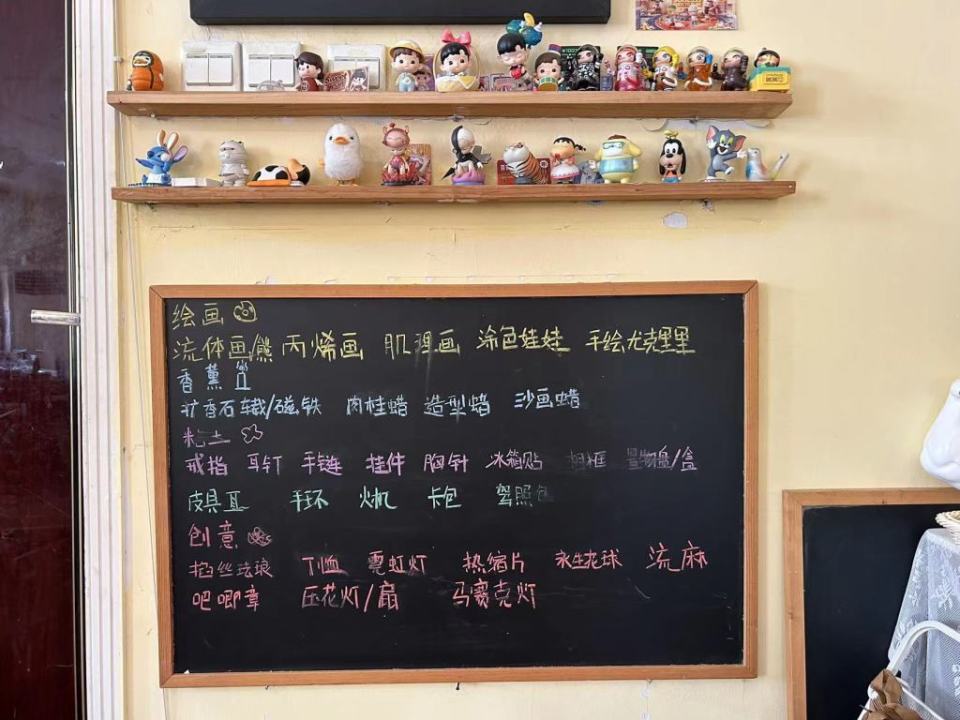 绘画
流体画熊 丙烯画 肌理画 涂色娃娃 手绘尤克里里
香薰
扩香石车载/磁铁 肉桂蜡 造型蜡 沙画蜡
粘土
戒指 耳钉 手链 挂件 胸针 冰箱贴 相框 置物盘/盒
皮具 手环 火机 卡包 驾照包
创意
掐丝珐琅 T恤 霓虹灯 热缩片 永生花球 流麻
吧唧章 压花灯/扇 马赛克灯